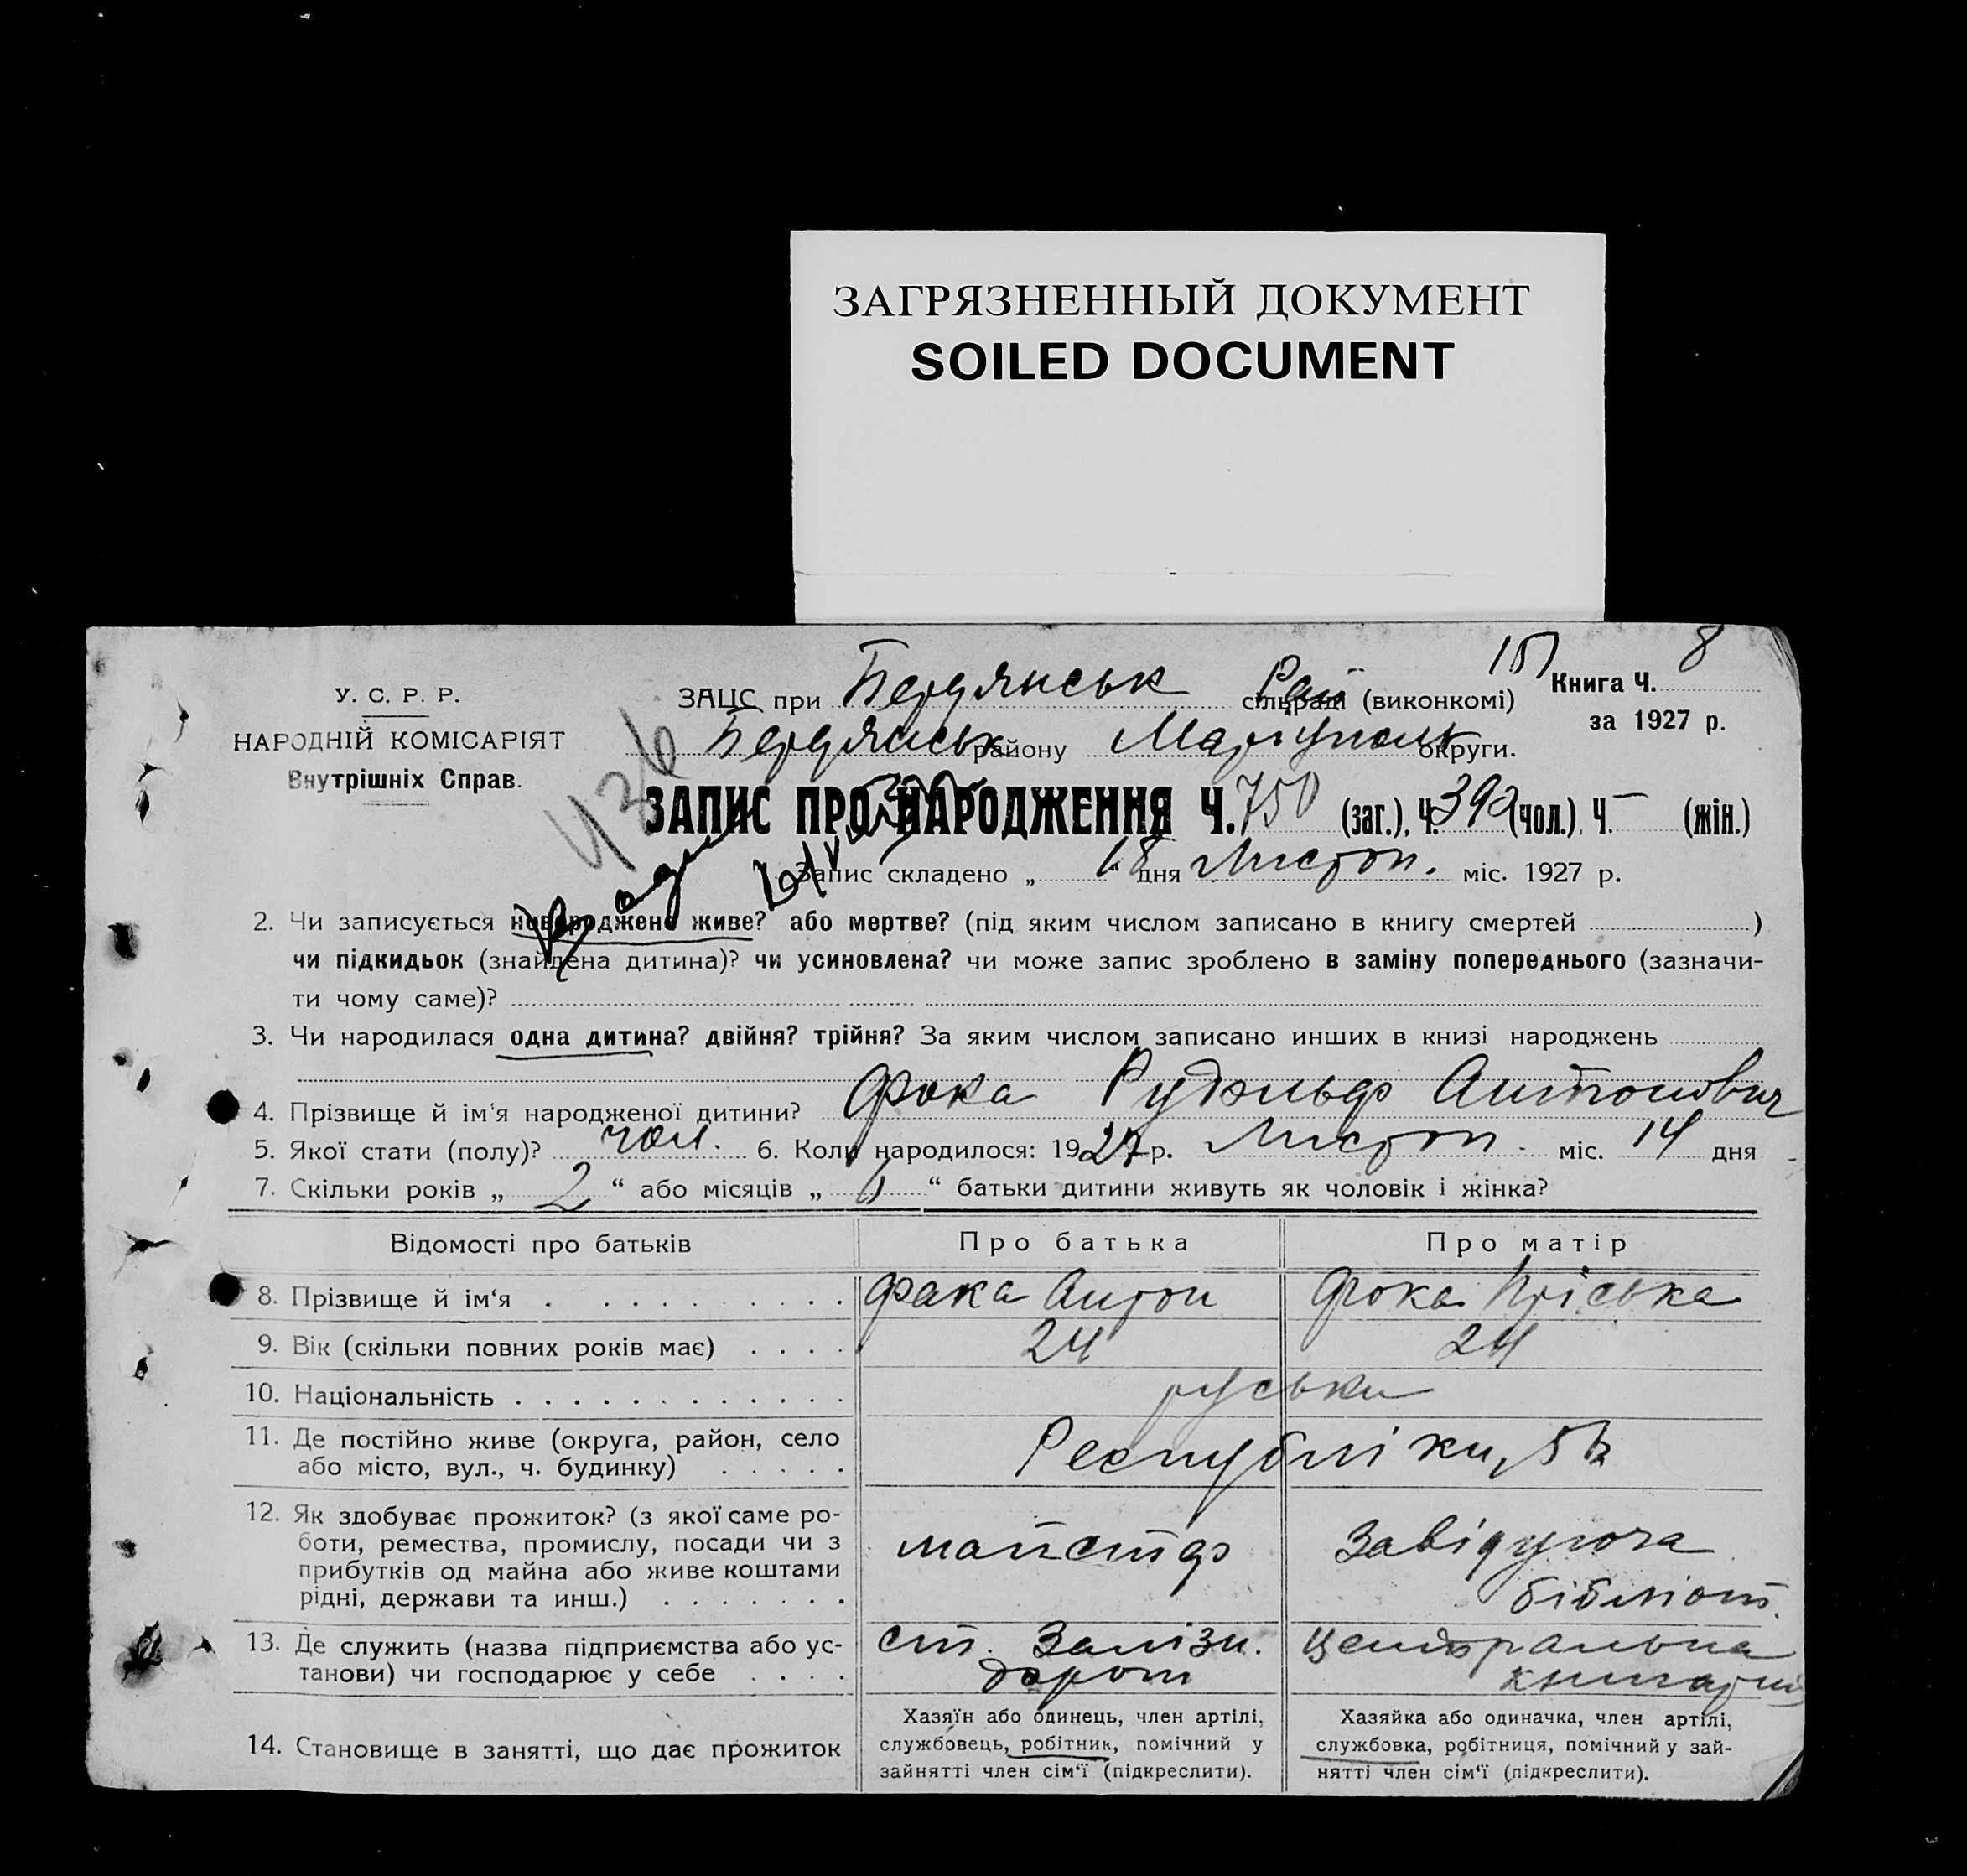 ЗАГРЯЗНЕННЫЙ ДОКУМЕНТ
SOILED DOCUMENT
У. С. Р. Р.
НАРОДНІЙ КОМІСАРІЯТ
Внутрішніх Справ.
ЗАЦС при Бердянськ сільраді Рай (виконкомі)
151 Книга Ч. 8
за 1927 р.
Бердянськ району Маріуполь округи.
436
ЗАПИС ПРО НАРОДЖЕННЯ Ч. 750 (заг.), Ч. 392 (чол.), Ч. — (жін.)
Запис складено „ 18 “ дня Листоп. міс. 1927 р.
2. Чи записується новороджене живе? або мертве? (під яким числом записано в книгу смертей )
чи підкидьок (знайдена дитина)? чи усиновлена? чи може запис зроблено в заміну попереднього (зазначи-
ти чому саме)?
3. Чи народилася одна дитина? двійня? трійня? За яким числом записано инших в книзі народжень
4. Прізвище й ім‘я народженої дитини? Фока Рудольф Антонович
5. Якої стати (полу)? чол. 6. Коли народилося: 1927 р. Листоп. міс. 14 дня
7. Скільки років „ 2 “ або місяців „ “ батьки дитини живуть як чоловік і жінка?
Відомості про батьків Про батька Про матір
8. Прізвище й ім‘я Фака Антон Фока Пріська
9. Вік (скільки повних років має) 24 24
10. Національність руськи
11. Де постійно живе (округа, район, село
або місто, вул., ч. будинку) Республіки,
12. Як здобуває прожиток? (з якої саме ро-
боти, ремества, промислу, посади чи з
прибутків од майна або живе коштами
рідні, держави та инш.)
майстр Завідуюча
бібліот.
13. Де служить (назва підприємства або ус-
танови) чи господарює у себе
ст. Залізн. дорот Центральна
книгарні
14. Становище в занятті, що дає прожиток
Хазяїн або одинець, член артілі,
службовець, робітник, помічний у
зайнятті член сім‘ї (підкреслити).
Хазяйка або одиначка, член артілі,
службовка, робітниця, помічний у зай-
нятті член сім‘ї (підкреслити).